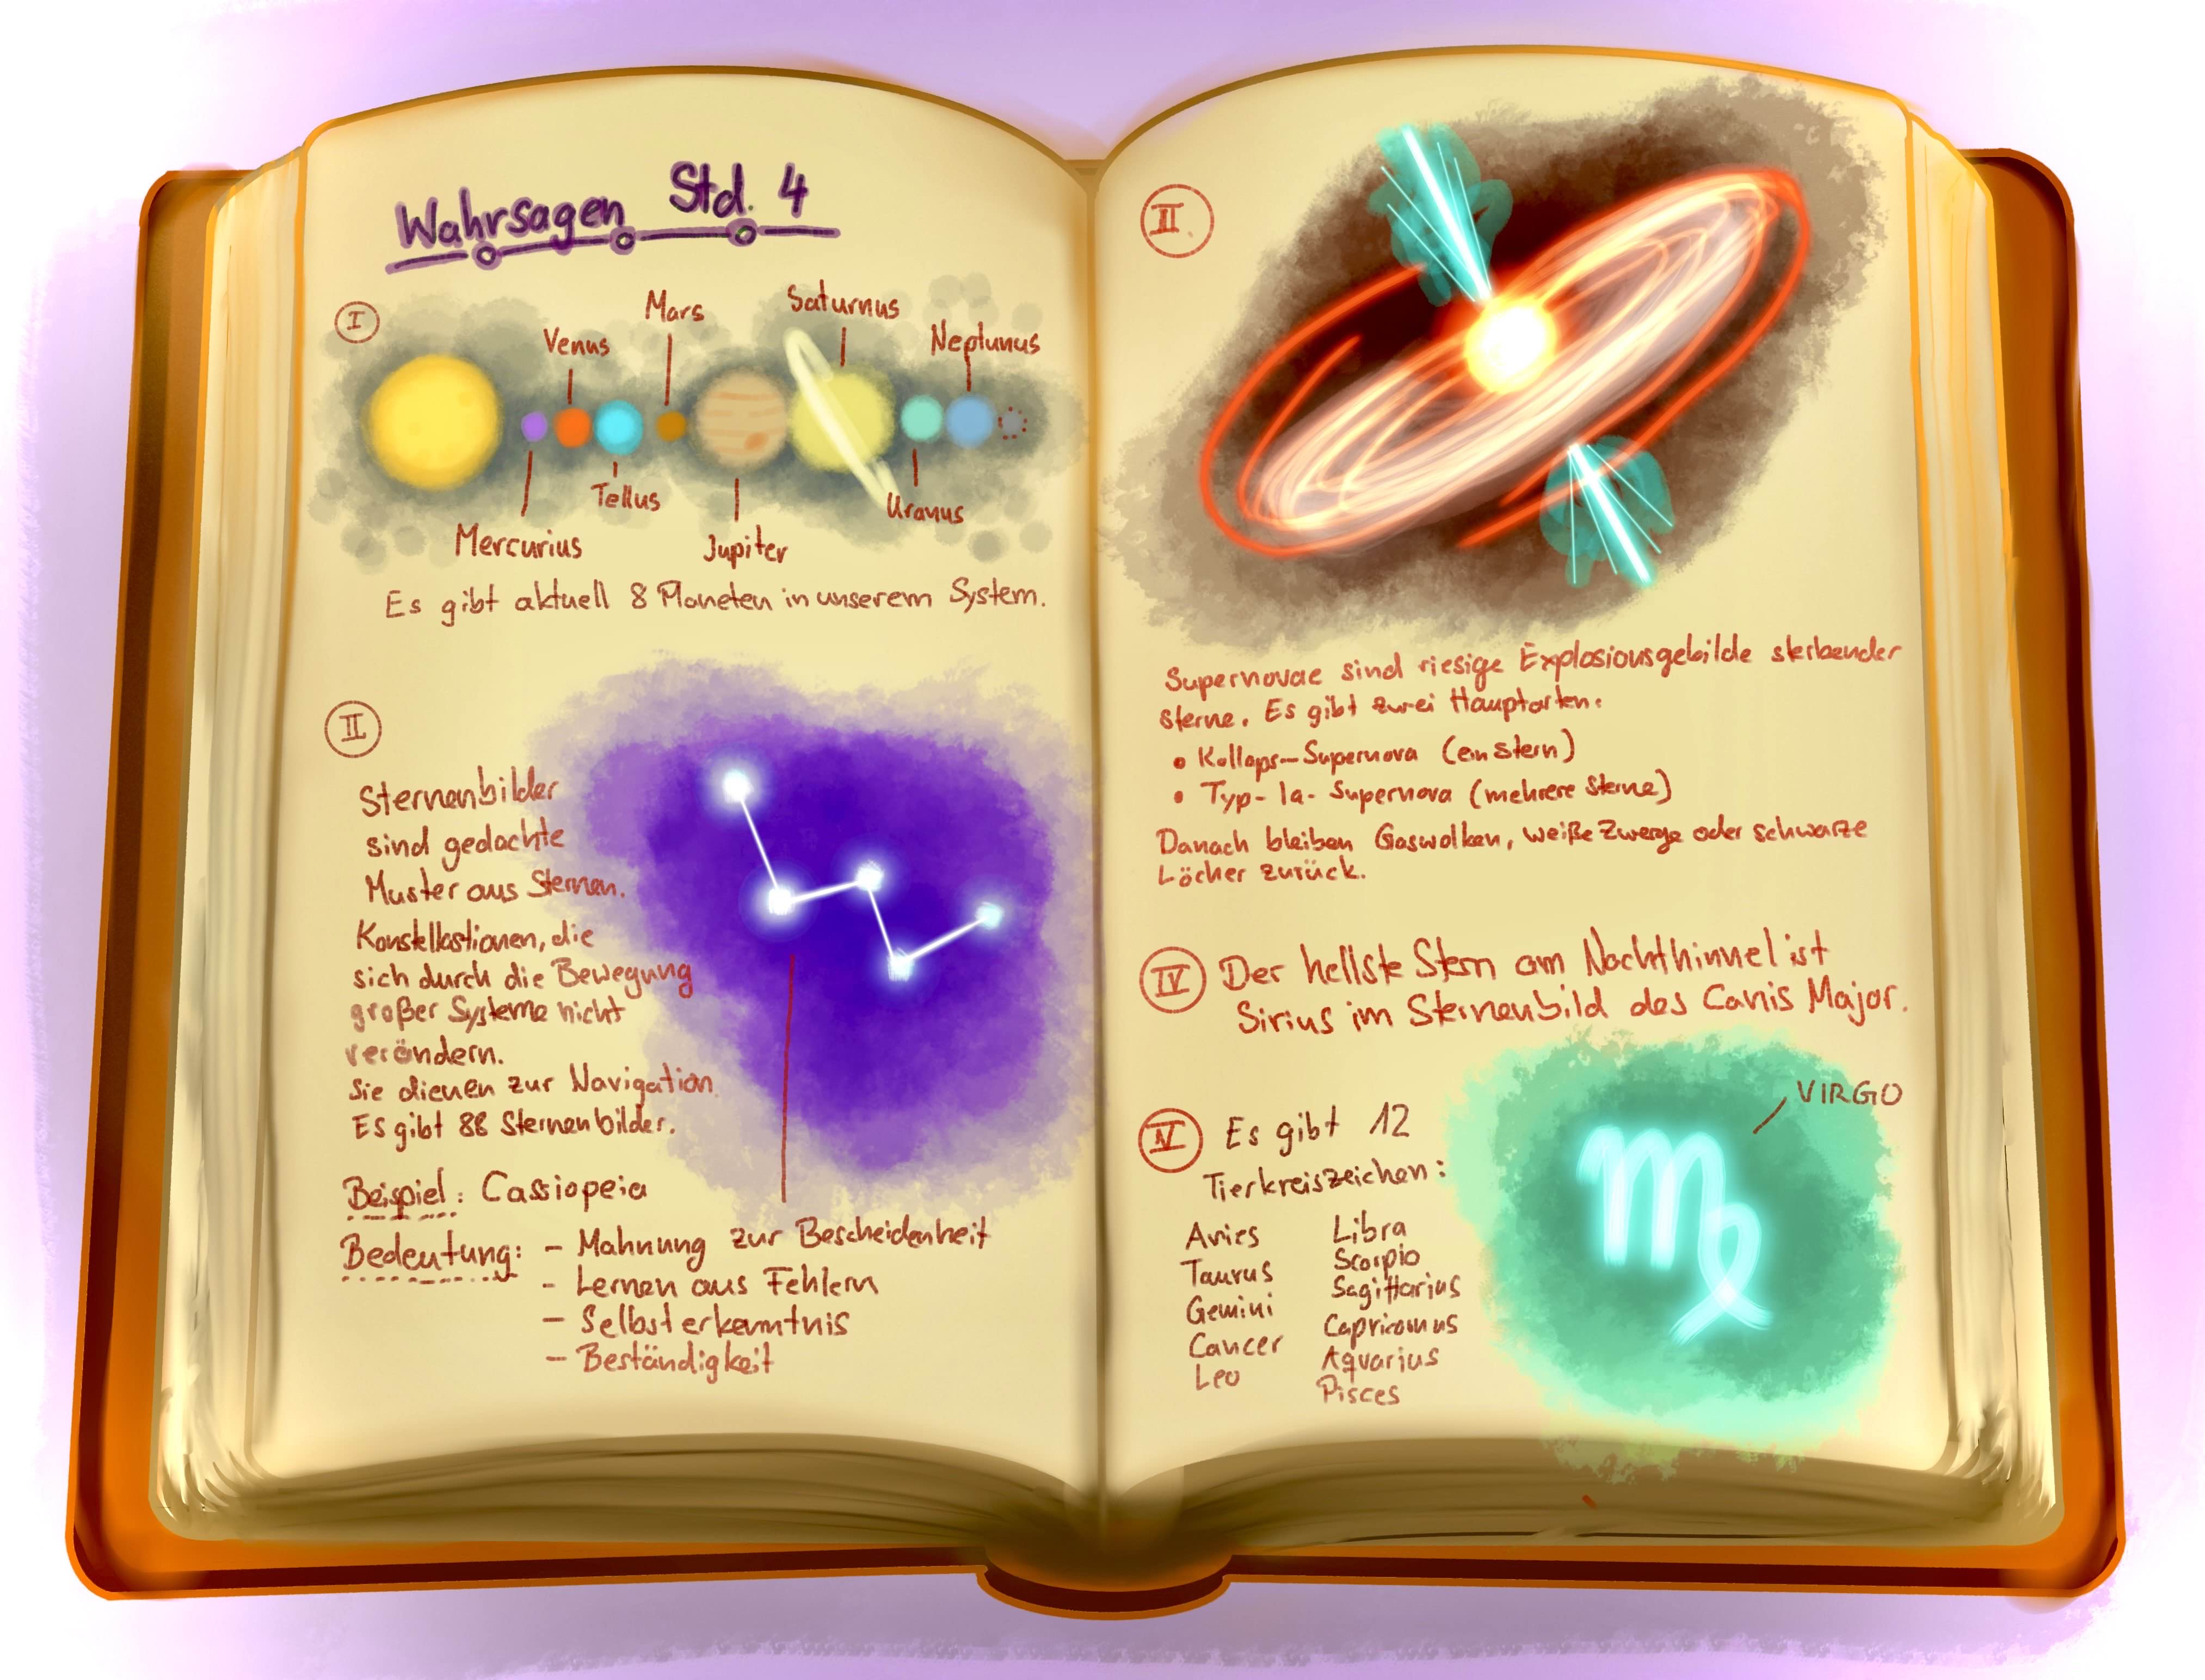 Wahrsagen Std. 4
I
Mars
Saturnus
Venus
Neptunus
Tellus
Uranus
Mercurius
Jupiter
Es gibt aktuell 8 Planeten in unserem System.
II
Sternenbilder
sind gedachte
Muster aus Sternen.
Konstellastionen, die
sich durch die Bewegung
großer Systeme nicht
verändern.
Sie dienen zur Navigation.
Es gibt 88 Sternenbilder.
Beispiel: Cassiopeia
Bedeutung: - Mahnung zur Bescheidenheit
- Lernen aus Fehlern
- Selbsterkenntnis
- Beständigkeit
II.
Supernovae sind riesige Explosionsgebilde sterbender
Sterne. Es gibt zwei Hauptarten:
• Kollaps-Supernova (ein Stern)
• Typ-1a-Supernova (mehrere Sterne)
Danach bleiben Gaswolken, weiße Zwerge oder schwarze
Löcher zurück.
IV Der hellste Stern am Nachthimmel ist
Sirius im Sternenbild des Canis Major.
VIRGO
IV Es gibt 12
Tierkreiszeichen:
Aries Libra
Taurus Scorpio
Gemini Sagittarius
Cancer Capricornus
Leo Aquarius
Pisces